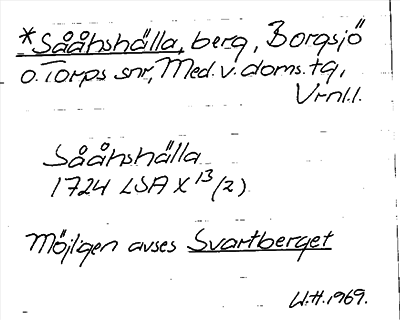 *Sååhshälla, berg, Borgsjö
o. Torps snr, Med. v. doms. tg,
Vrnl.l.
Sååhshälla
1724 LSA X 13 (2)
Möjligen avses Svartberget
W.H. 1969.